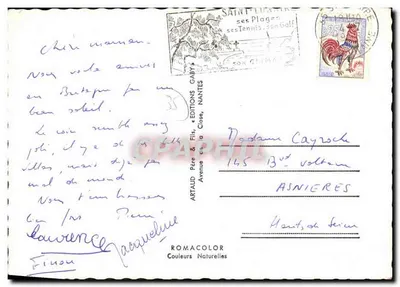 SAINT
ses Plages
ses Tennis, son Golf
Chère maman.
Nous voilà arrivés
en Bretagne par un
bien soleil.
Le coin semble assez
joli, il y a de
villas, mais déjà pas
mal de monde
Nous t'embrassons
Laurence
Jacqueline
ARTAUD Père & Fils, "EDITIONS GABY"
Avenue de la Close, NANTES
Madame Cayroche
145 Bvd Voltaire
ASNIERES
Hauts de Seine
ROMACOLOR
Couleurs Naturelles